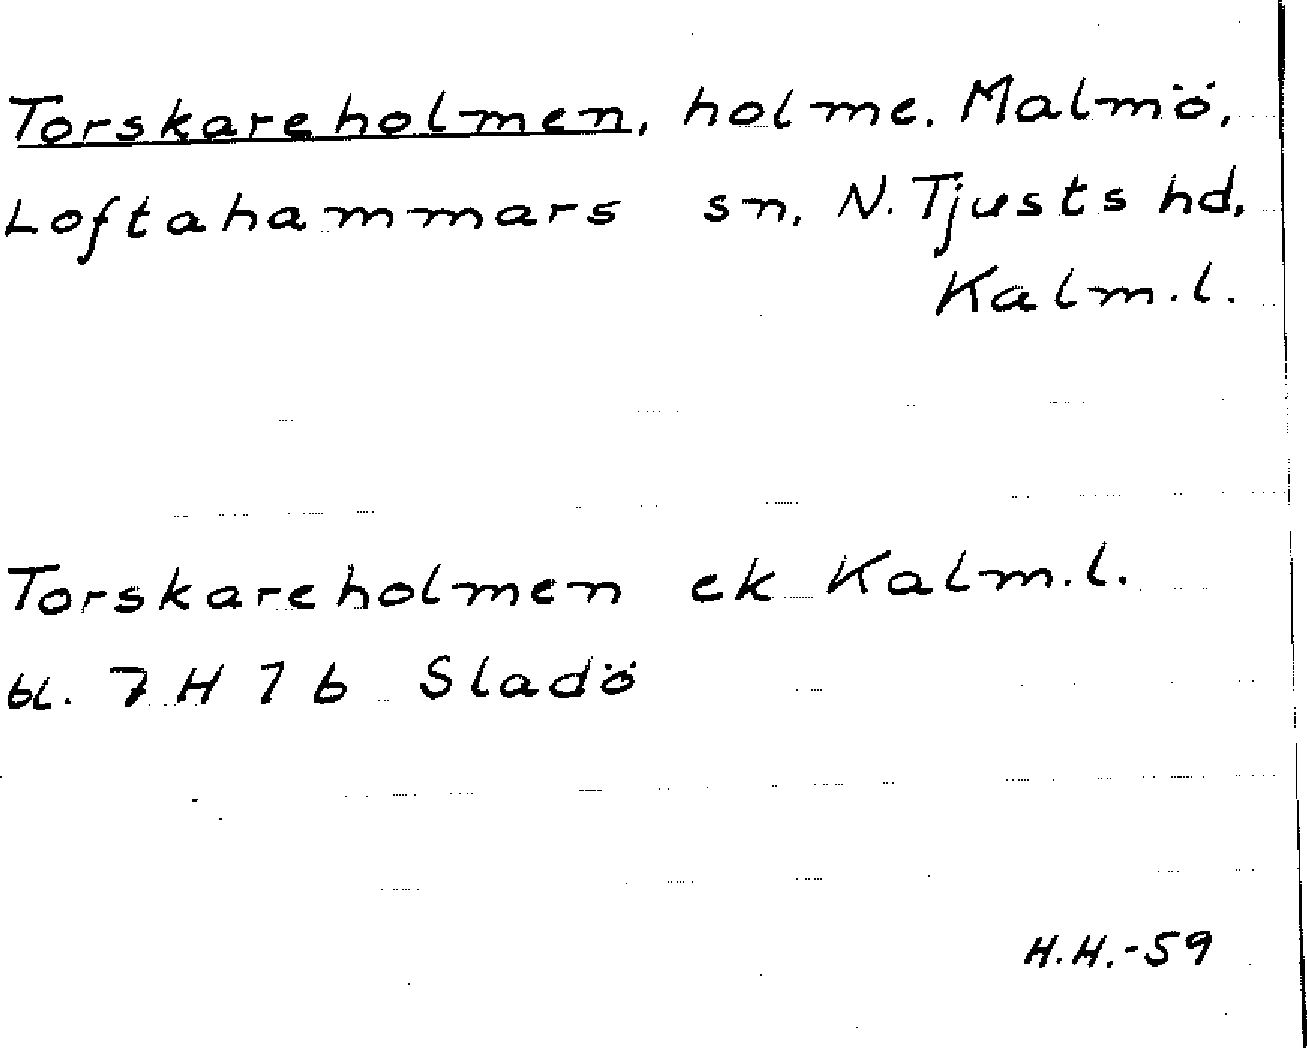 Torskareholmen, holme. Malmö,
Loftahammars sn, N. Tjusts hd,
Kalm. l.
Torskareholmen ek Kalm. l.
bl. 7 H 7 b Sladö
H.H.-59